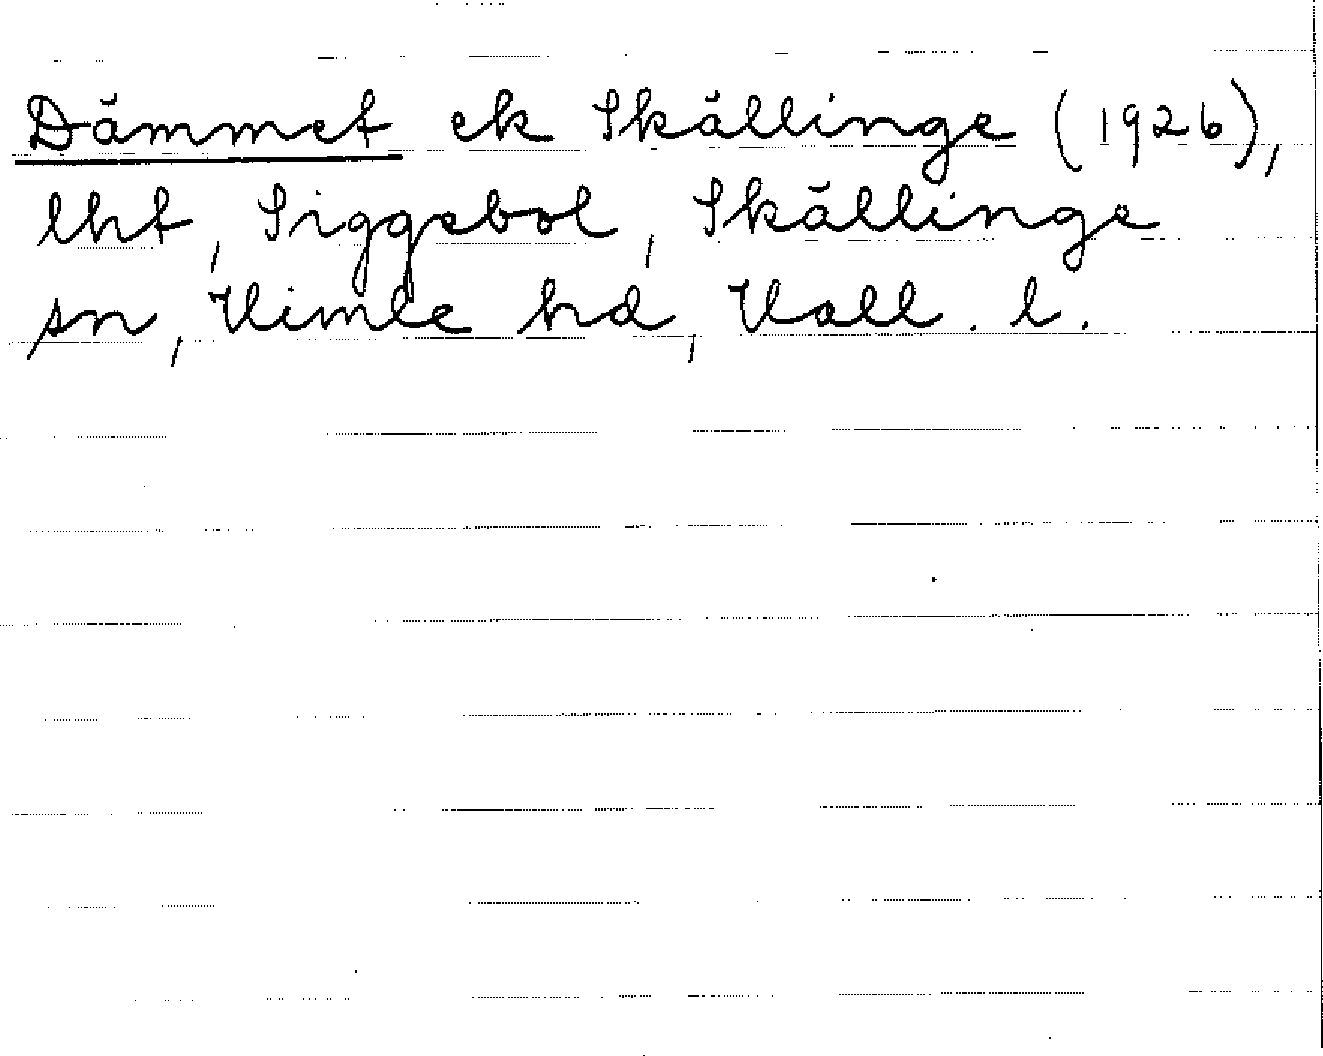 Dämmet ek Skällinge (1926),
lht, Siggebol, Skällinge
sn, Himle hd, Hall. l.